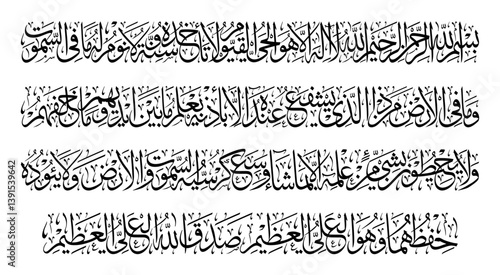 بِسْمِ اللَّهِ الرَّحْمَنِ الرَّحِيمِ اللَّهُ لَا إِلَهَ إِلَّا هُوَ الْحَيُّ الْقَيُّومُ لَا تَأْخُذُهُ سِنَةٌ وَلَا نَوْمٌ لَهُ مَا فِي السَّمَوَاتِ
وَمَا فِي الْأَرْضِ مَنْ ذَا الَّذِي يَشْفَعُ عِنْدَهُ إِلَّا بِإِذْنِهِ يَعْلَمُ مَا بَيْنَ أَيْدِيهِمْ وَمَا خَلْفَهُمْ
وَلَا يُحِيطُونَ بِشَيْءٍ مِنْ عِلْمِهِ إِلَّا بِمَا شَاءَ وَسِعَ كُرْسِيُّهُ السَّمَوَاتِ وَالْأَرْضَ وَلَا يَئُودُهُ
حِفْظُهُمَا وَهُوَ الْعَلِيُّ الْعَظِيمُ صَدَقَ اللَّهُ الْعَلِيُّ الْعَظِيمُ
Adobe Stock | #1391539642